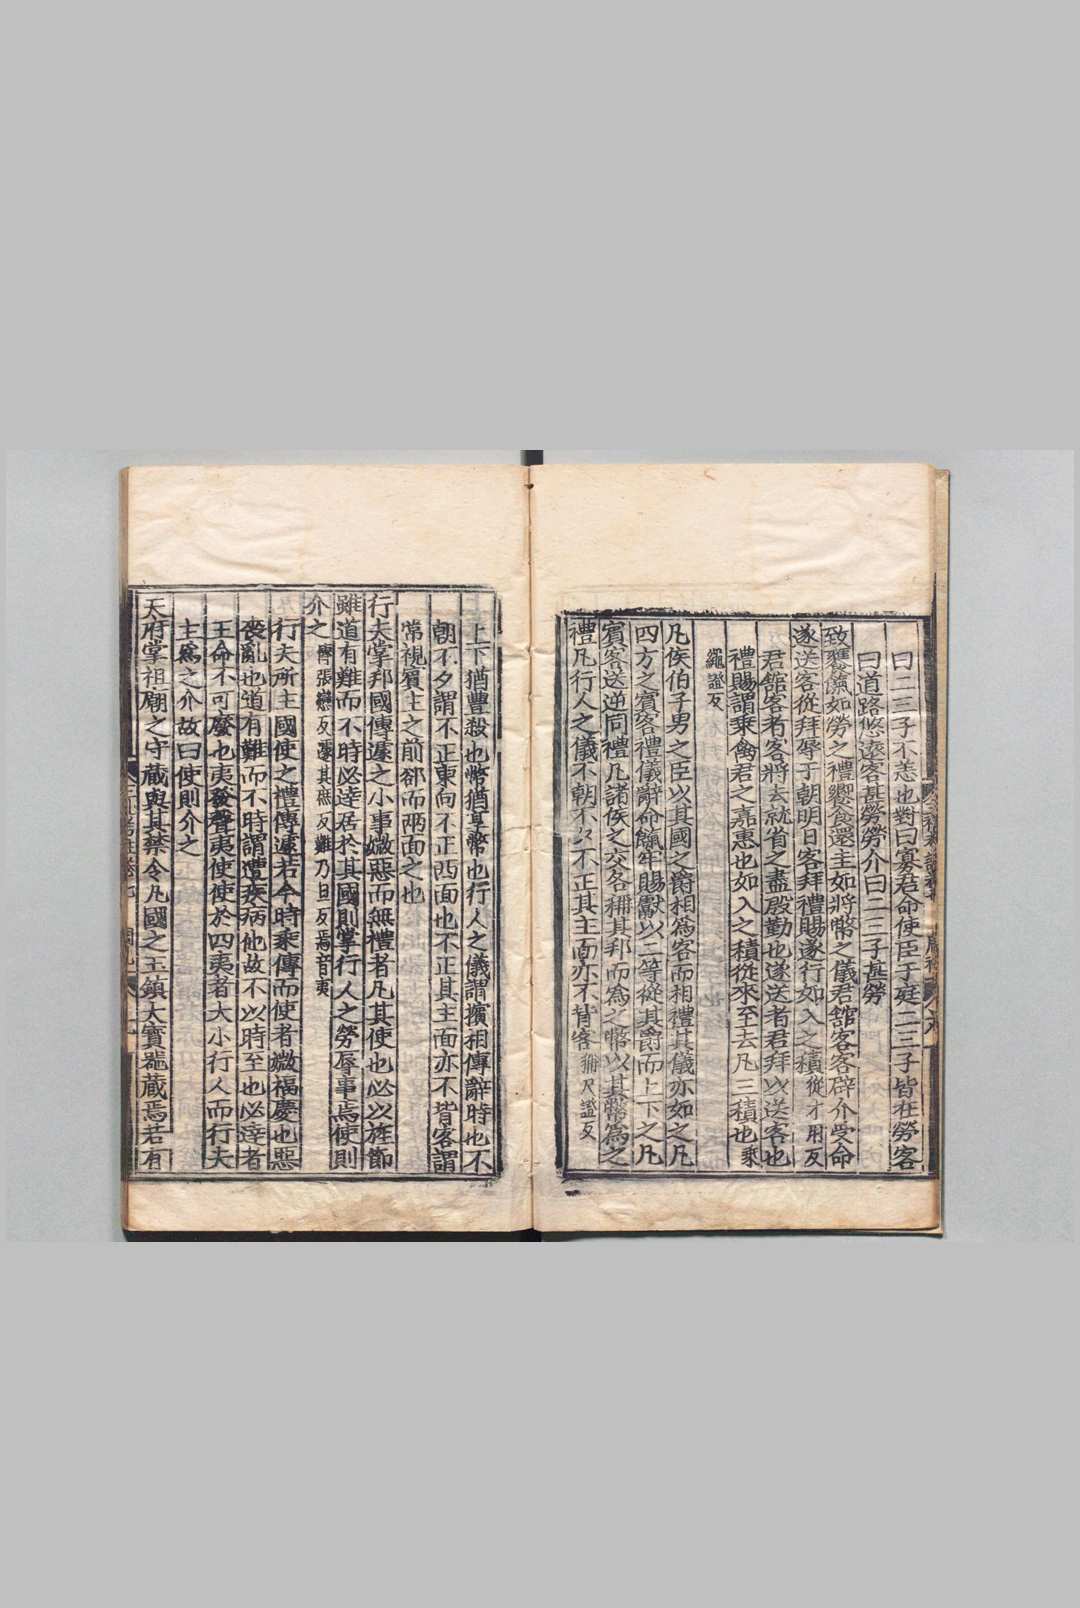 曰二三子不恙也對曰寡君命使臣于庭二三子皆在勞客
曰道路悠遠客甚勞勞介曰二三子甚勞
致饔餼如勞之禮饗食還圭如將幣之儀君館客客辟介受命
遂送客從拜辱于朝明日客拜禮賜遂行如入之積從才用反
君館客者客將去就省之盡殷勤也遂送者君拜以送客也
禮賜謂乘禽君之嘉惠也如入之積從來至去凡三積也乘
繩證反
凡侯伯子男之臣以其國之爵相爲客而相禮其儀亦如之凡
四方之賓客禮儀辭命餼牢賜獻以二等從其爵而上下之凡
賓客送逆同禮凡諸侯之交各稱其邦而爲之幣以其幣爲之
禮凡行人之儀不朝不夕不正其主面亦不背客稱尺證反
上下猶豐殺也幣猶享幣也行人之儀謂擯相傳辭時也不
朝不夕謂不正東向不正西面也不正其主面亦不背客謂
常視賓主之前郤而兩面之也
行夫掌邦國傳遽之小事媺惡而無禮者凡其使也必以旌節
雖道有難而不時必達居於其國則掌行人之勞辱事焉使則
介之傳張戀反遽其庶反難乃旦反焉音夷
行夫所主國使之禮傳遽若今時乘傳而使者媺福慶也惡
喪亂也道有難而不時謂遭疾病他故不以時至也必達者
王命不可廢也夷發聲夷使使於四夷者大小行人而行夫
主爲之介故曰使則介之
天府掌祖廟之守藏與其禁令凡國之玉鎮大寶器藏焉若有